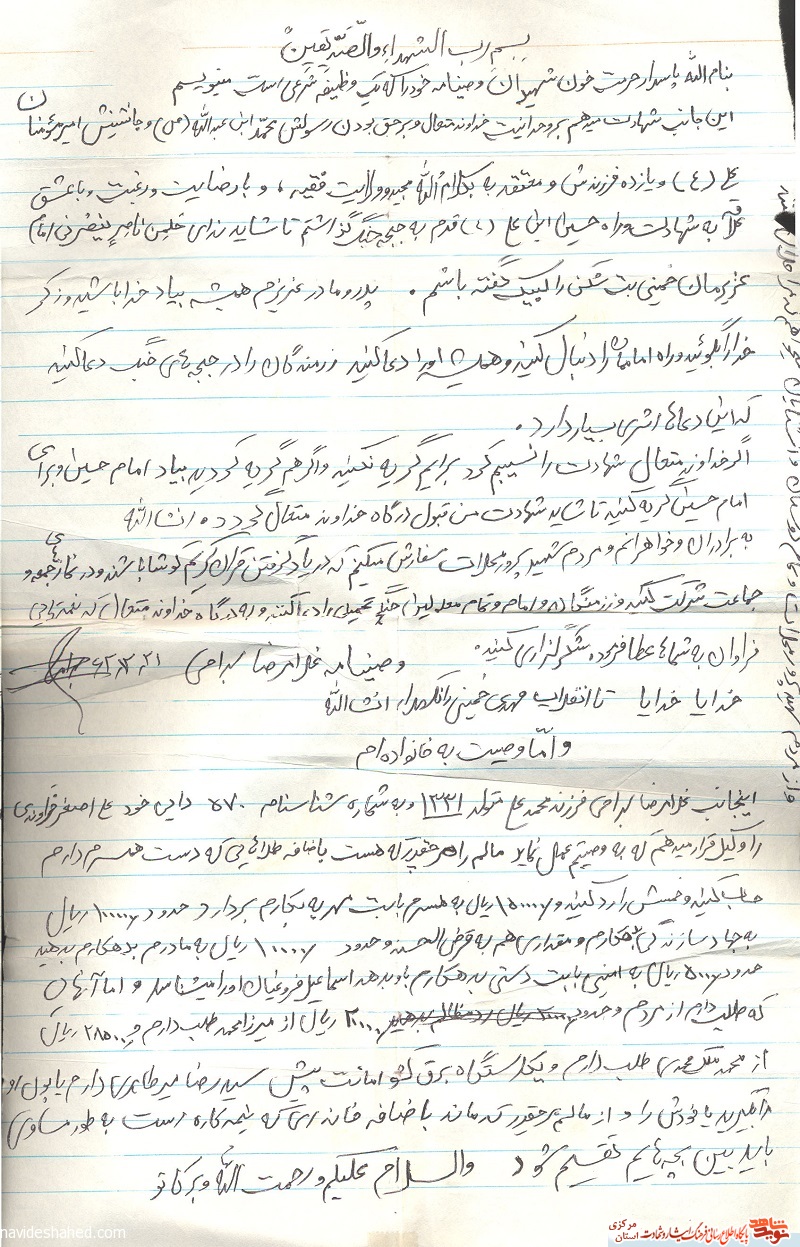 بسم رب الشهداء والصّدّیقین
بنام الله پاسدار حرمت خون شهیدان وصیتنامه خود را که یک وظیفه شرعی است مینویسم
این جانب شهادت میدهم بر وحدانیت خداوند متعال و بر حق بودن رسولش محمّد ابن عبدالله (ص) و جانشینش امیرمؤمنان
علی (ع) و یازده فرزندش و معتقد به کلام الله مجید و ولایت فقیه ، و با رضایت و رغبت و با عشق
به شهادت و راه حسین ابن علی (ع) قدم به جبهه جنگ گذاشتم تا شاید ندای هل من ناصر ینصرنی امام
عزیزمان خمینی بت شکن را لبیک گفته باشم . پدر و مادر عزیزم همیشه بیاد خدا باشید و ذکر
خدا را بگوئید و راه امامان را دنبال کنید و همیشه او را دعا کنید رزمندگان را در جبهه های جنگ دعا کنید
که این دعاها اثری بسیار دارد .
اگر خداوند متعال شهادت را نصیبم کرد برایم گریه نکنید و اگر هم گریه کردید بیاد امام حسین و برای
امام حسین گریه کنید تا شاید شهادت من قبول درگاه خداوند متعال گردد . انشاالله
به برادران و خواهرانم و مردم شهید پرور محلات سفارش میکنم که در یاد گرفتن قرآن کریم کوشا باشند و در نماز های جمعه و
جماعت شرکت کنید و رزمندگان و امام و تمام معلولین جنگ تحمیلی را دعا کنند و به درگاه خداوند متعال که نعمتهایی
فراوان به شماها عطا فرموده شکرگزاری کنید. وصیتنامه غلامرضا
خدایا خدایا تا انقلاب مهدی خمینی را نگهدار انشاالله
و امّا وصیت به خانواده ام
اینجانب غلامرضا فرزند محمد علی متولد ۱۳۳۱ و به شماره شناسنامه ۵۷۰ دایی خود علی اصغر
را وکیل قرار میدهم که به وصیتم عمل نماید مالم را هر چقدر که هست باضافه طلاهایی که دست همسرم دارم
حساب کنید و خمسش را رد کنید و ریال به همسرم بابت مهریه بدهکارم بردارد حدود ریال
به جهاد سازندگی بدهکارم و مقداری هم به قرض الحسنه و حدود ریال به مادرم بدهکارم بدهید
حدود ریال به امینی بابت دستی بدهکارم باو بدهد اسماعیل او را میشناسد و اما آنهایی
که طلب دارم از مردم و حدود ریال از میرزا محمد طلب دارم و ۲۸۵۰۰ ریال
از محمد ملک محمدی طلب دارم و یکدستگاه برق امانت پیش سید رضا میرطاهری دارم یا پول او
را بگیرید یا خودش را و از مالم هر چقدر که ماند باضافه خانه ای که نیمه کاره است به طور مساوی
باید بین بچه هایم تقسیم شود والسلام علیکم و رحمت الله و برکاتو
navideshahed.com
نوید شاهد
پایگاه اطلاع رسانی فرهنگ ایثار و شهادت
استان مرکزی